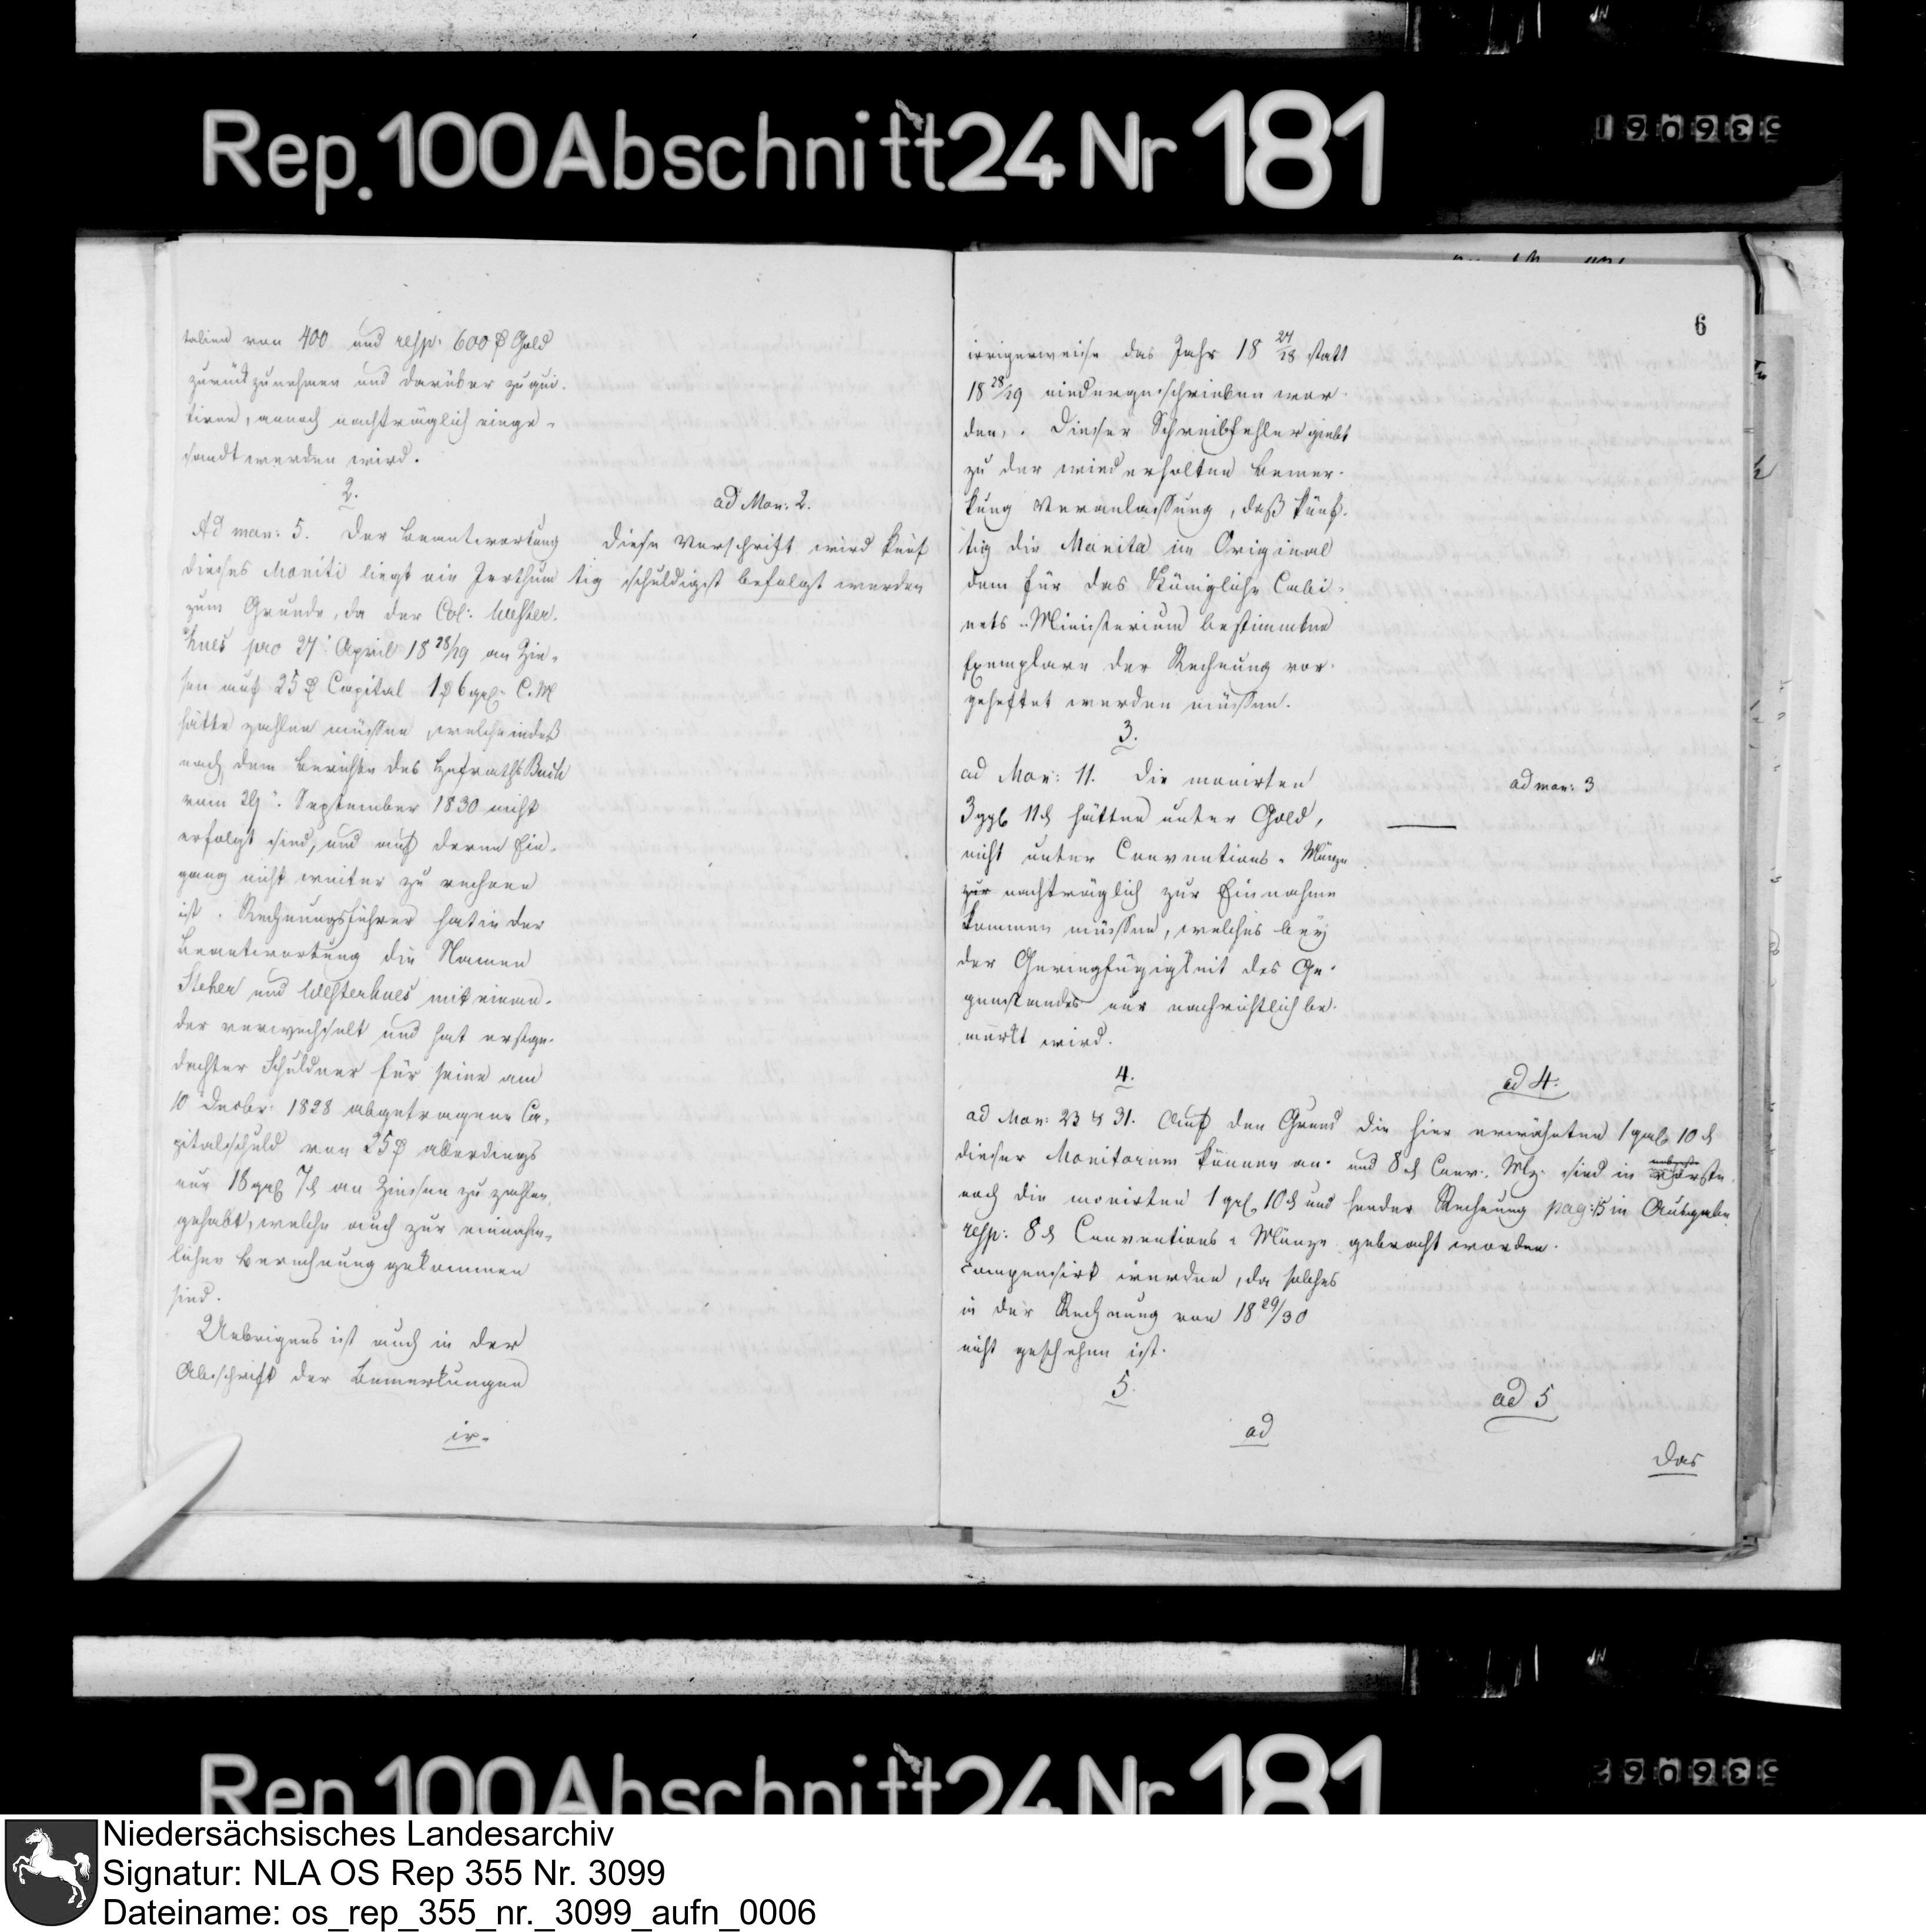 Rep. 100 Abschnitt 24 Nr 181
talien von 400 und resp. 600 ₰ Gold
zurückzunehmen und darüber zu qui-
tiren, annoch nachträglich einge-
sandt werden wird.
2.
Ad mon: 5. Der Beantwortung
dieses Moniti liegt ein Irrthum
zum Grunde, da der Col: Wester-
hues pro 27 April 18 28/29 an Zin-
sen auf 25 ₰ Capital 1 ₰ 6 ggl. C. M
hätte zahlen müssen, welche indeß
nach dem Berichte des Hofraths Buch
vom 29. September 1830 nicht
erfolgt sind, und auf deren Ein-
gang nicht weiter zu rechnen
ist. Rechnungsführer hat in der
Beantwortung die Namen
und Westerhues mit einan-
der verwechselt und hat erstge-
dachter Schuldner für seine am
10 Decbr: 1828 abgetragene Ca-
pitalschuld von 25 ₰ allerdings
nur 18 ggl. 7 d an Zinsen zu zahlen
gehabt, welche auch zur einnahm-
lichen Berechnung gekommen
sind.
Uebrigens ist auch in der
Abschrift der Bemerkungen
ir-
ad Mon: 2.
Diese Vorschrift wird künf
tig schuldigst befolgt werden
6
irrigerweise das Jahr 18 27/28 statt
18 28/29 niedergeschrieben wor-
den. Dieser Schreibfehler giebt
zu der wiederholten Bemer-
kung Veranlassung, daß künf-
tig die Monita im Original
dem für das Königliche Cabi-
nets-Ministerium bestimmten
Exemplare der Rechnung vor-
geheftet werden müssen.
3.
ad Mon: 11. Die monirten
3 ggl 11 d hätten unter Gold,
nicht unter Conventions-Münze
zur nachträglich zur Einnahme
kommen müssen, welches bey
der Geringfügigkeit des Ge-
genstandes nur nachrichtlich be-
merkt wird.
ad mon: 3
4.
ad Mon: 23 & 31. Auf den Grund
dieser Monitorum können an-
noch die monirten 1 ggl. 10 d und
resp: 8 d Conventions-Münze
compensirt werden, da solches
in der Rechnung von 18 29/30
nicht geschehen ist.
5.
ad
ad 4.
Die hier erwähnten 1 ggl 10 d
und 8 d Conv. Mz. sind in
hender Rechnung pag: 15 in Ausgabe
gebracht worden.
ad 5
Das
Rep. 100 Abschnitt 24 Nr 181
Niedersächsisches Landesarchiv
Signatur: NLA OS Rep 355 Nr. 3099
Dateiname: os_rep_355_nr._3099_aufn_0006